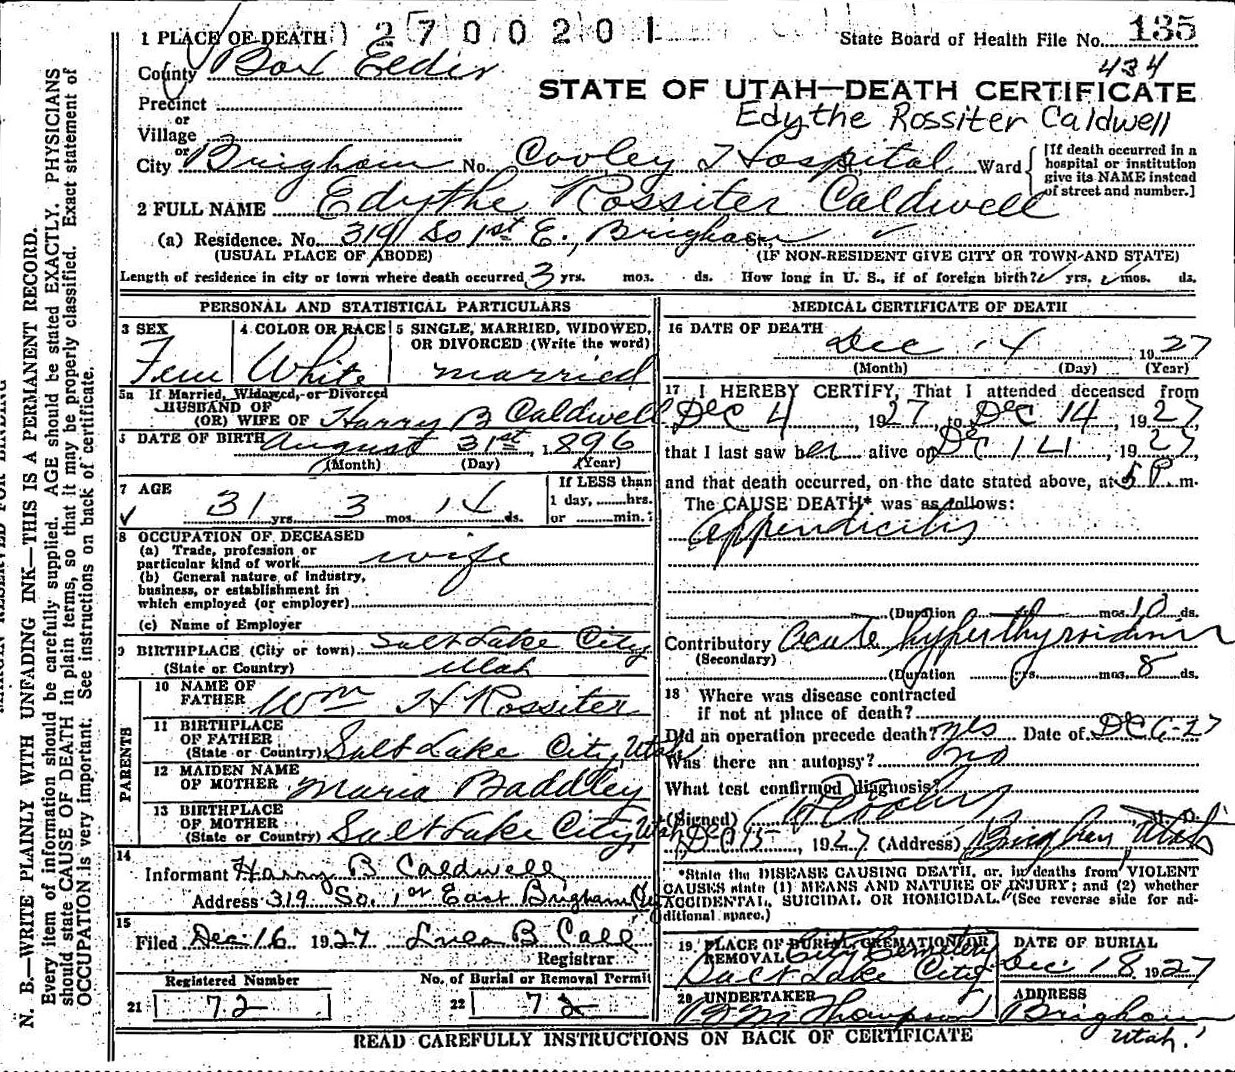 1 PLACE OF DEATH 2700201 State Board of Health File No. 135
County Box Elder 434
STATE OF UTAH—DEATH CERTIFICATE
Precinct
or
Village
Edythe Rossiter Caldwell
or
City Brigham No. Cooley Hospital St. Ward
[If death occurred in a hospital or institution give its NAME instead of street and number.]
2 FULL NAME Edythe Rossiter Caldwell
(a) Residence. No. 319 So 1st E., Brigham St.
(USUAL PLACE OF ABODE) (IF NON-RESIDENT GIVE CITY OR TOWN AND STATE)
Length of residence in city or town where death occurred 3 yrs. mos. ds. How long in U. S., if of foreign birth? yrs. mos. ds.
PERSONAL AND STATISTICAL PARTICULARS
3 SEX 4 COLOR OR RACE 5 SINGLE, MARRIED, WIDOWED, OR DIVORCED (Write the word)
Fem White married
5a If Married, Widowed, or Divorced
HUSBAND OF
(OR) WIFE OF Harry B Caldwell
DATE OF BIRTH August 31st, 1896
(Month) (Day) (Year)
7 AGE If LESS than
31 yrs. 3 mos. 14 ds. 1 day, hrs.
or min.
8 OCCUPATION OF DECEASED
(a) Trade, profession or
particular kind of work wife
(b) General nature of industry,
business, or establishment in
which employed (or employer)
(c) Name of Employer
9 BIRTHPLACE (City or town) Salt Lake City
(State or Country) Utah
PARENTS
10 NAME OF FATHER Wm H Rossiter
11 BIRTHPLACE OF FATHER
(State or Country) Salt Lake City, Utah
12 MAIDEN NAME OF MOTHER Maria Baddley
13 BIRTHPLACE OF MOTHER
(State or Country) Salt Lake City, Utah
14
Informant Harry B Caldwell
Address 319 So. 1st East Brigham
15
Filed Dec. 16 1927 B Call
Registrar
Registered Number No. of Burial or Removal Permit
21 72 22 72
MEDICAL CERTIFICATE OF DEATH
16 DATE OF DEATH
Dec 14, 1927
(Month) (Day) (Year)
17 I HEREBY CERTIFY, That I attended deceased from
Dec 4, 1927, to Dec 14, 1927,
that I last saw her alive on Dec 14, 1927
and that death occurred, on the date stated above, at 5 P. m.
The CAUSE DEATH* was as follows:
appendicitis
(Duration mos. 10 ds.
Contributory Acute hyperthyroidism
(Secondary)
(Duration yrs. mos. 8 ds.
18 Where was disease contracted
if not at place of death?
Did an operation precede death? yes Date of Dec 6-27
Was there an autopsy? no
What test confirmed diagnosis?
(Signed) M. D.
Dec 15, 1927 (Address) Brigham, Utah
*State the DISEASE CAUSING DEATH, or, in deaths from VIOLENT
CAUSES state (1) MEANS AND NATURE OF INJURY; and (2) whether
ACCIDENTAL, SUICIDAL OR HOMICIDAL. (See reverse side for ad-
ditional space.)
19 PLACE OF BURIAL, CREMATION OR REMOVAL DATE OF BURIAL
City Cemetery
Salt Lake City Dec. 18, 1927
20 UNDERTAKER ADDRESS
M Thompson Brigham
Utah.
READ CAREFULLY INSTRUCTIONS ON BACK OF CERTIFICATE
N. B.—WRITE PLAINLY WITH UNFADING INK—THIS IS A PERMANENT RECORD.
Every item of information should be carefully supplied. AGE should be stated EXACTLY. PHYSICIANS
should state CAUSE OF DEATH in plain terms, so that it may be properly classified. Exact statement of
OCCUPATION is very important. See instructions on back of certificate.
MARGIN RESERVED FOR BINDING